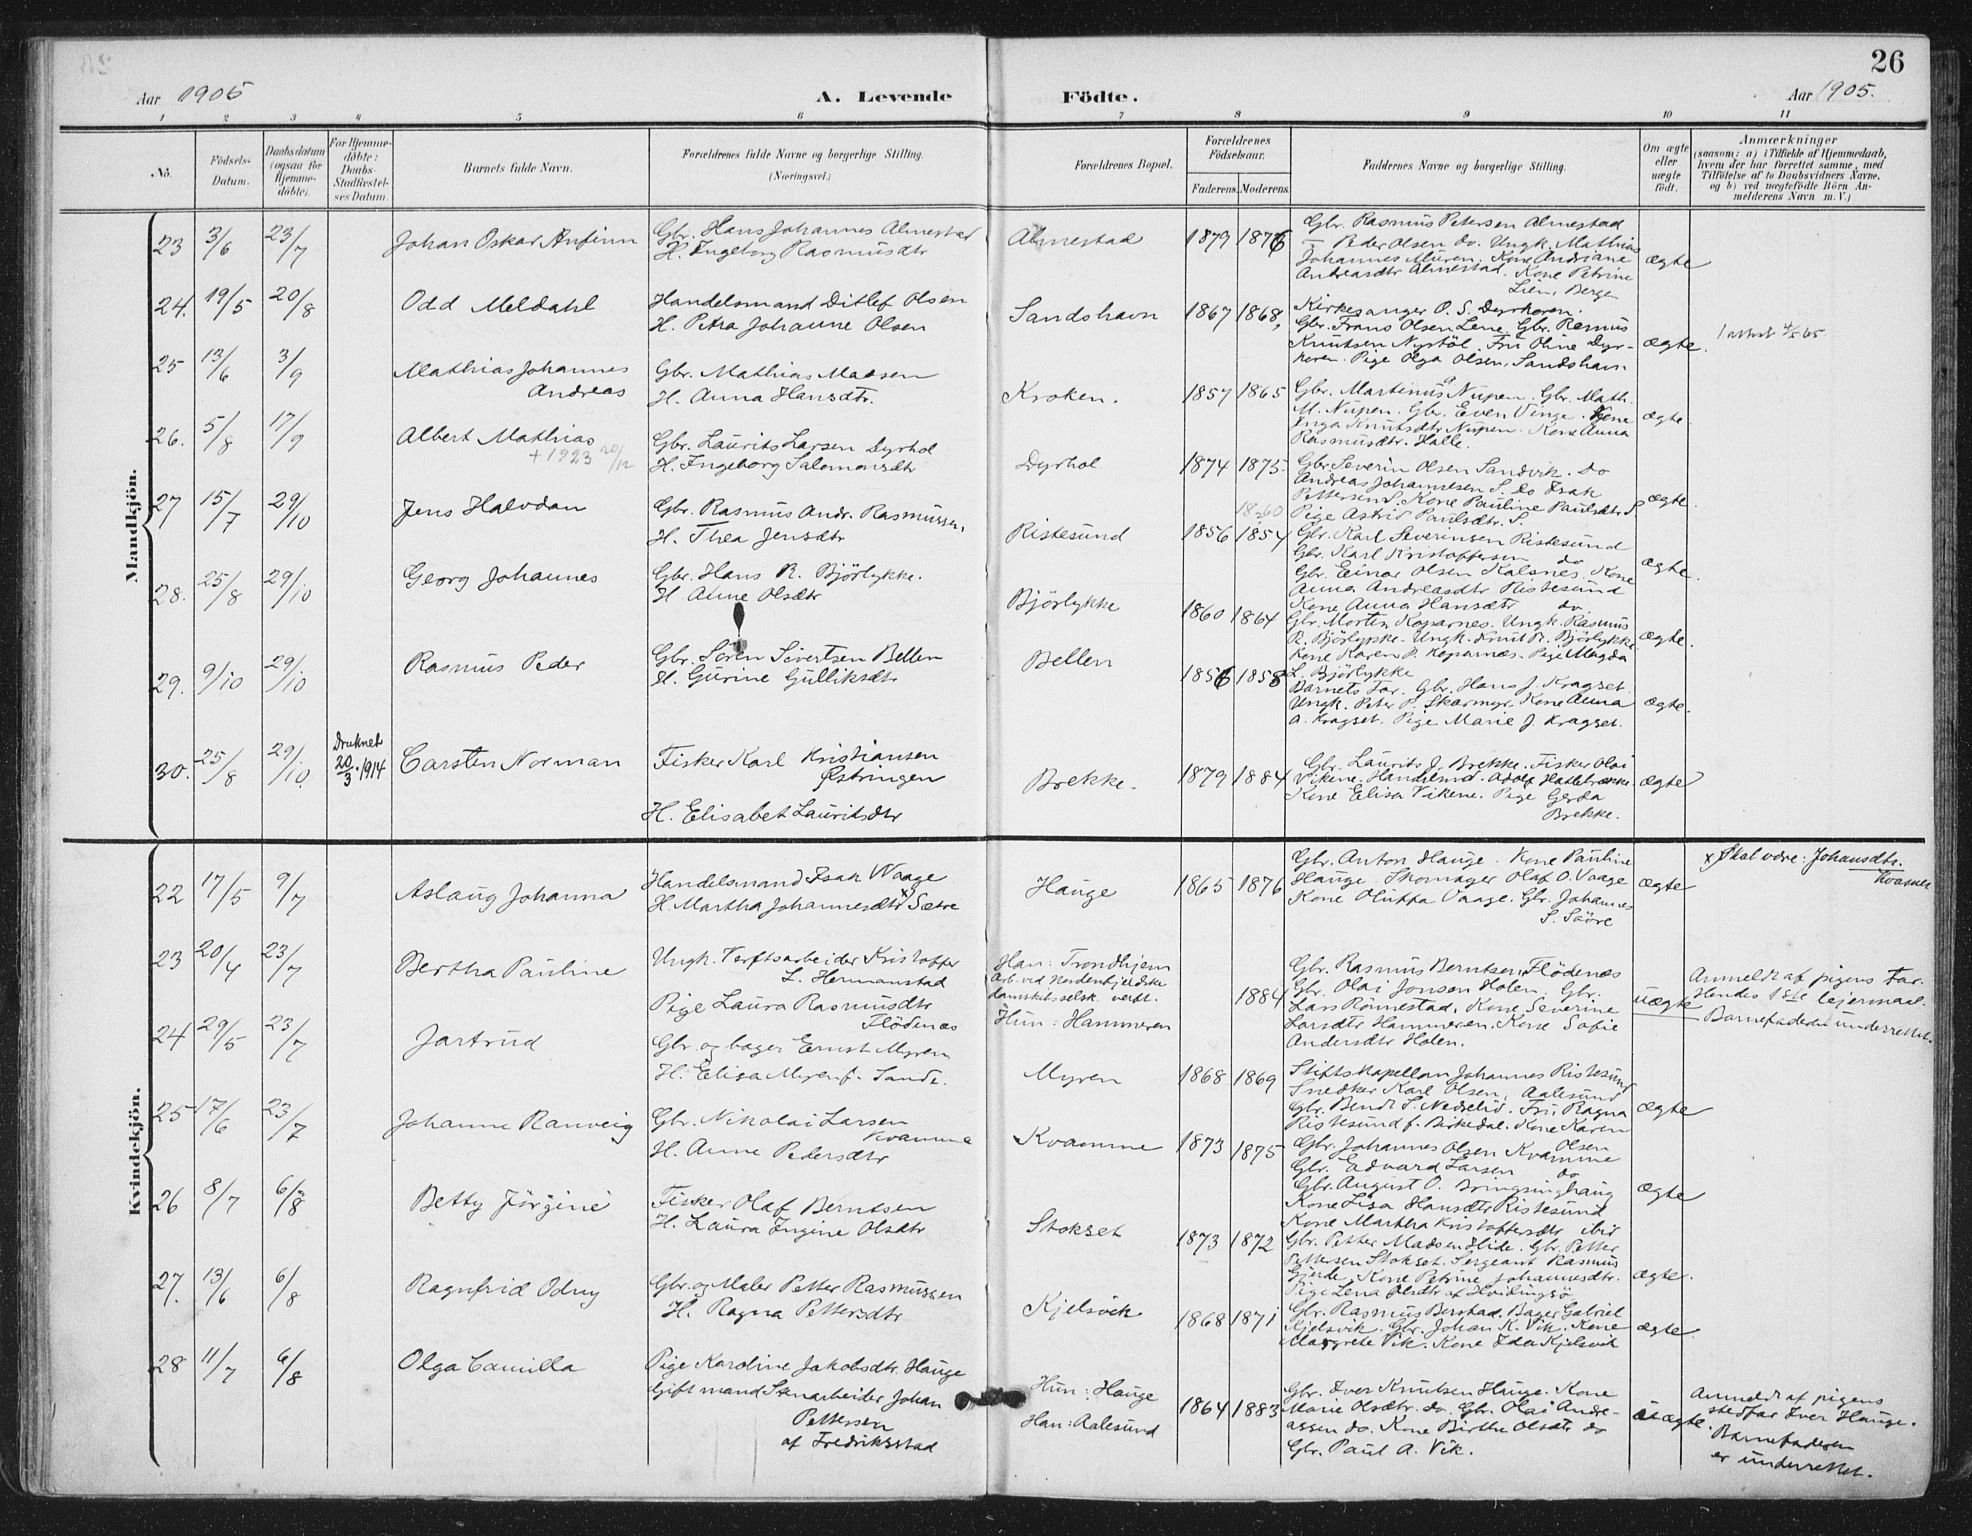 26
Aar 1905
A. Levende
Födte.
Aar 1905.
1 2 3 4 5 6 7 8 9 10 11
No.
Födsels-Datum.
Daabsdatum (ogsaa for Hjemmedöbte).
For Hjemmedöbte: Daabs-Stadfæstelses Datum.
Barnets fulde Navn.
Forældrenes fulde Navne og borgerlige Stilling.
(Næringsvei.)
Forældrenes Bopæl.
Forældrenes Födselsaar.
Faderens. Moderens.
Faddernes Navne og borgerlige Stilling.
Om ægte eller uægte födt.
Anmærkninger
(saasom: a) i Tilfælde af Hjemmedaab, hvem der har forrettet samme, med Tilföielse af to Daabsvidners Navne, og b) ved uægtefödte Börn Anmelderens Navn m. V.)
Mandkjön.
23 3/6 23/7 Johan Oskar Anfinn
Gbr. Hans Johannes Almestad
H. Ingeborg Rasmusdtr
Almestad 1879 1876
Gbr. Rasmus Petersen Almestad
— Peder Olsen do. Ungk. Mathias
Johannes Muren. Kone Andriane
Andreasdtr Almestad. Kone Petrine
Lien, Bergen
ægte
24. 19/5 20/8 Odd Meldahl
Handelsmand Ditlef Olsen
H. Petra Johanne Olsen
Sandshavn 1867 1868
Kirkesanger O. S. Dyrkoren.
Gbr. Frans Olsen Lene. Gbr. Rasmus
Knutsen Nystöl. Fru Oline Dyr-
koren. Pige Olga Olsen, Sandshavn
ægte.
25 13/6 3/9 Mathias Johannes
Andreas
Gbr. Mathias Madsen
H. Anna Hansdtr.
Kroken. 1857 1865
Gbr. Martinus Nupen. Gbr. Math.
M. Nupen. Gbr. Even Vinge. Kone
Inga Knutsdtr Nupen. Kone Anna
Rasmusdtr. Halle.
ægte
26. 5/8 17/9 Albert Mathias
+ 1923 20/12
Gbr. Laurits Larsen Dyrhol
H. Ingeborg Salomonsdtr
Dyrhol 1874 1875.
Gbr Severin Olsen Sandvik. do
Andreas Johannesen S. Do Isak
Pettersen S. Kone Pauline Paulsdtr S
Pige Astrid Paulsdtr. S.
ægte.
27 15/7 29/10 Jens Halvdan
Gbr. Rasmus Andr. Rasmussen,
H. Thea Jensdtr
Ristesund 1856 1854
Gbr. Karl Severinsen Ristesund
Gbr. Karl Kristoffersen do
Gbr. Einar Olsen Kalsnes. Kone
Anna Andreasdtr Ristesund
Kone Anna Hansdtr do.
ægte.
28. 25/8 29/10 Georg Johannes
Gbr. Hans R. Björlykke.
H. Anne Olsdtr
Björlykke 1860 1864
Gbr. Morten Koparnes. Ungk. Rasmus
R. Björlykke. Ungk. Knut R. Björlykke
Kone Karen P. Koparnæs. Pige Magda
L. Björlykke
ægte.
29. 9/10 29/10 Rasmus Peder
Gbr. Sören Sivertsen Bellen
H. Gurine Gulliksdtr
Bellen 1856 1858
Barnets Far. Gbr. Hans J. Kragset.
Ungk. Peter P. Skarmyr. Kone Anna
A. Kragset. Pige Marie J. Kragset.
ægte.
30. 25/8 29/10. Druknet 20/3 1914 Carsten Norman
Fisker Karl Kristiansen
Østringen
H. Elisabet Lauritsdtr
Brekke. 1879 1884
Gbr. Laurits J. Brekke. Fisker Olai
Vikene. Handelsmd. Adolf Hatlebrekke
Kone Elisa Vikene. Pige Gerda
Brekke.
ægte
Kvindekjön.
22 17/5 9/7 Aslaug Johanna
Handelsmand Isak Waage
H. Martha Johannesdtr x Sætre
Hauge 1865 1876
Gbr. Anton Hauge. Kone Pauline
Hauge. Skomager Olaf O. Vaage
Kone Oluffa Vaage. Gbr. Johannes
ægte
x Skal være: Johansdtr.
23 20/4 23/7 Bertha Pauline
Ungk. Verftsarbeider Kristoffer
L. Hermanstad
Pige Laura Rasmusdtr
Flödenæs
Han: Trondhjem
Arb. ved Nordenfjeldske
damskibsselsk. verft.
Hun: Hammeren
1884
Gbr. Rasmus Berntsen, Flödenæs
Gbr. Olai Jonsen Holen, Gbr.
Lars Rönnestad, Kone Severine
Larsdtr Hammeren. Kone Sofie
Andersdtr Holen.
uægte
Anmeldt af pigens Far.
Hendes 1ste leiermaal.
Barnefaderen underrettet.
24 29/5 23/7 Jartrud
Gbr. og bager Ernst Myren
H. Elisa Myren f. Sande.
Myren 1868 1869
Stiftskapellan Johannes Ristesund
Snedker Karl Olsen, Aalesund
Gbr. Bendt S. Nedrelid. Fru Ragna
Ristesund f. Birkedal. Kone Karen
Olsen
ægte
25 17/6 23/7 Johanne Ranveig
Gbr. Nikolai Larsen
Kvamme
H. Anne Pedersdtr
Kvamme 1873 1875
Gbr. Johannes Olsen Kvamme
Gbr. Edvard Larsen do
Gbr. August O. Bringsinghaug
Kone Lisa Hansdtr Ristesund
Kone Martha Kristoffersdtr ibid
ægte
26 8/7 6/8 Betty Jörgine
Fisker Olaf Berntsen
H. Laura Ingine Olsdtr
Stokset 1873 1872
Gbr. Petter Madsen Hide. Gbr. Petter
Pettersen Stokset. Sergeant Rasmus
Gjerde. Kone Petrine Johannesdtr.
Pige Lena Olsdtr af Hvidingsö
ægte.
27. 13/6 6/8 Ragnfrid Odny
Gbr. og Maler Petter Rasmussen
H. Ragna Pettersdtr
Kjelsvik 1868 1871
Gbr. Rasmus Berstad. Bager Gabriel
Kjelsvik. Gbr. Johan K. Vik. Kone
Margrete Vik. Kone Ida Kjelsvik
ægte.
28 11/7 6/8 Olga Camilla
Pige Karoline Jakobsdtr. Hauge
Gift mand Stenarbeider Johan
Pettersen
af Fredriksstad
Hun: Hauge
Han: Aalesund
1864 1883
Gbr. Iver Knutsen Hauge. Kone
Marie Olsdtr. do. Gbr. Olai Andre-
assen do. Kone Birthe Olsdtr do
Gbr. Paul A. Vik.
uægte.
Anmeldt af pigens
stedfar Iver Hauge.
Barnefaderen
er underrettet.